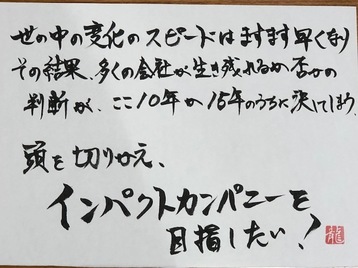 世の中の変化のスピードはますます早くなり
その結果、多くの会社が生き残れるか否かの
判断が、ここ10年か15年のうちに決してしまう。
頭を切りかえ、
インパクトカンパニーを
目指したい！
龍